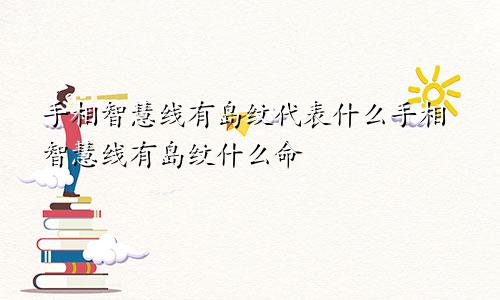 手相智慧线有岛纹代表什么手相
智慧线有岛纹什么命